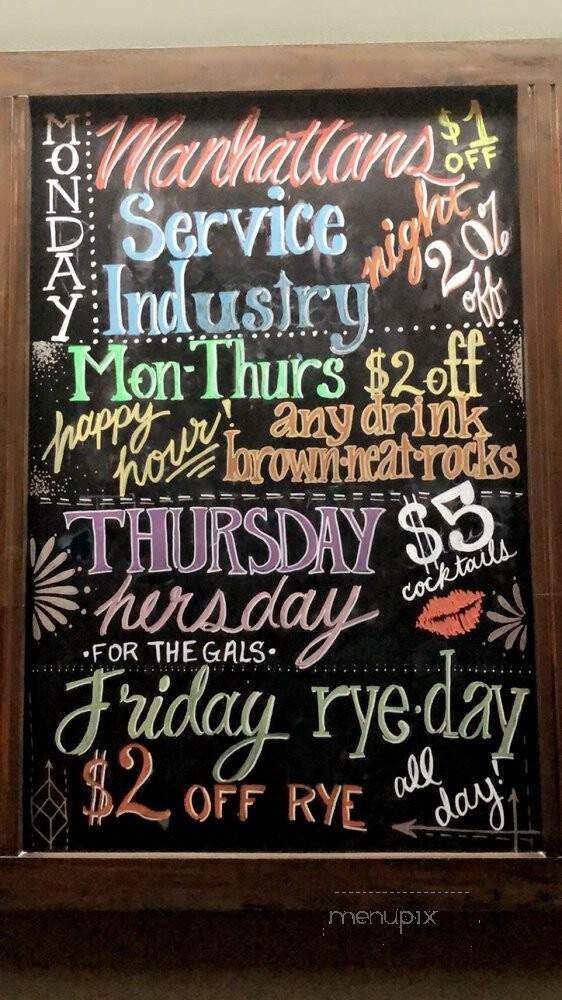 MONDAY
Manhattans $1 OFF
Service
Industry night 20% off
Mon-Thurs $2 off
happy hour! any drink
brown·neat·rocks
THURSDAY $5
hersday cocktails
·FOR THE GALS·
Friday rye·day
$2 OFF RYE all day!
menupix